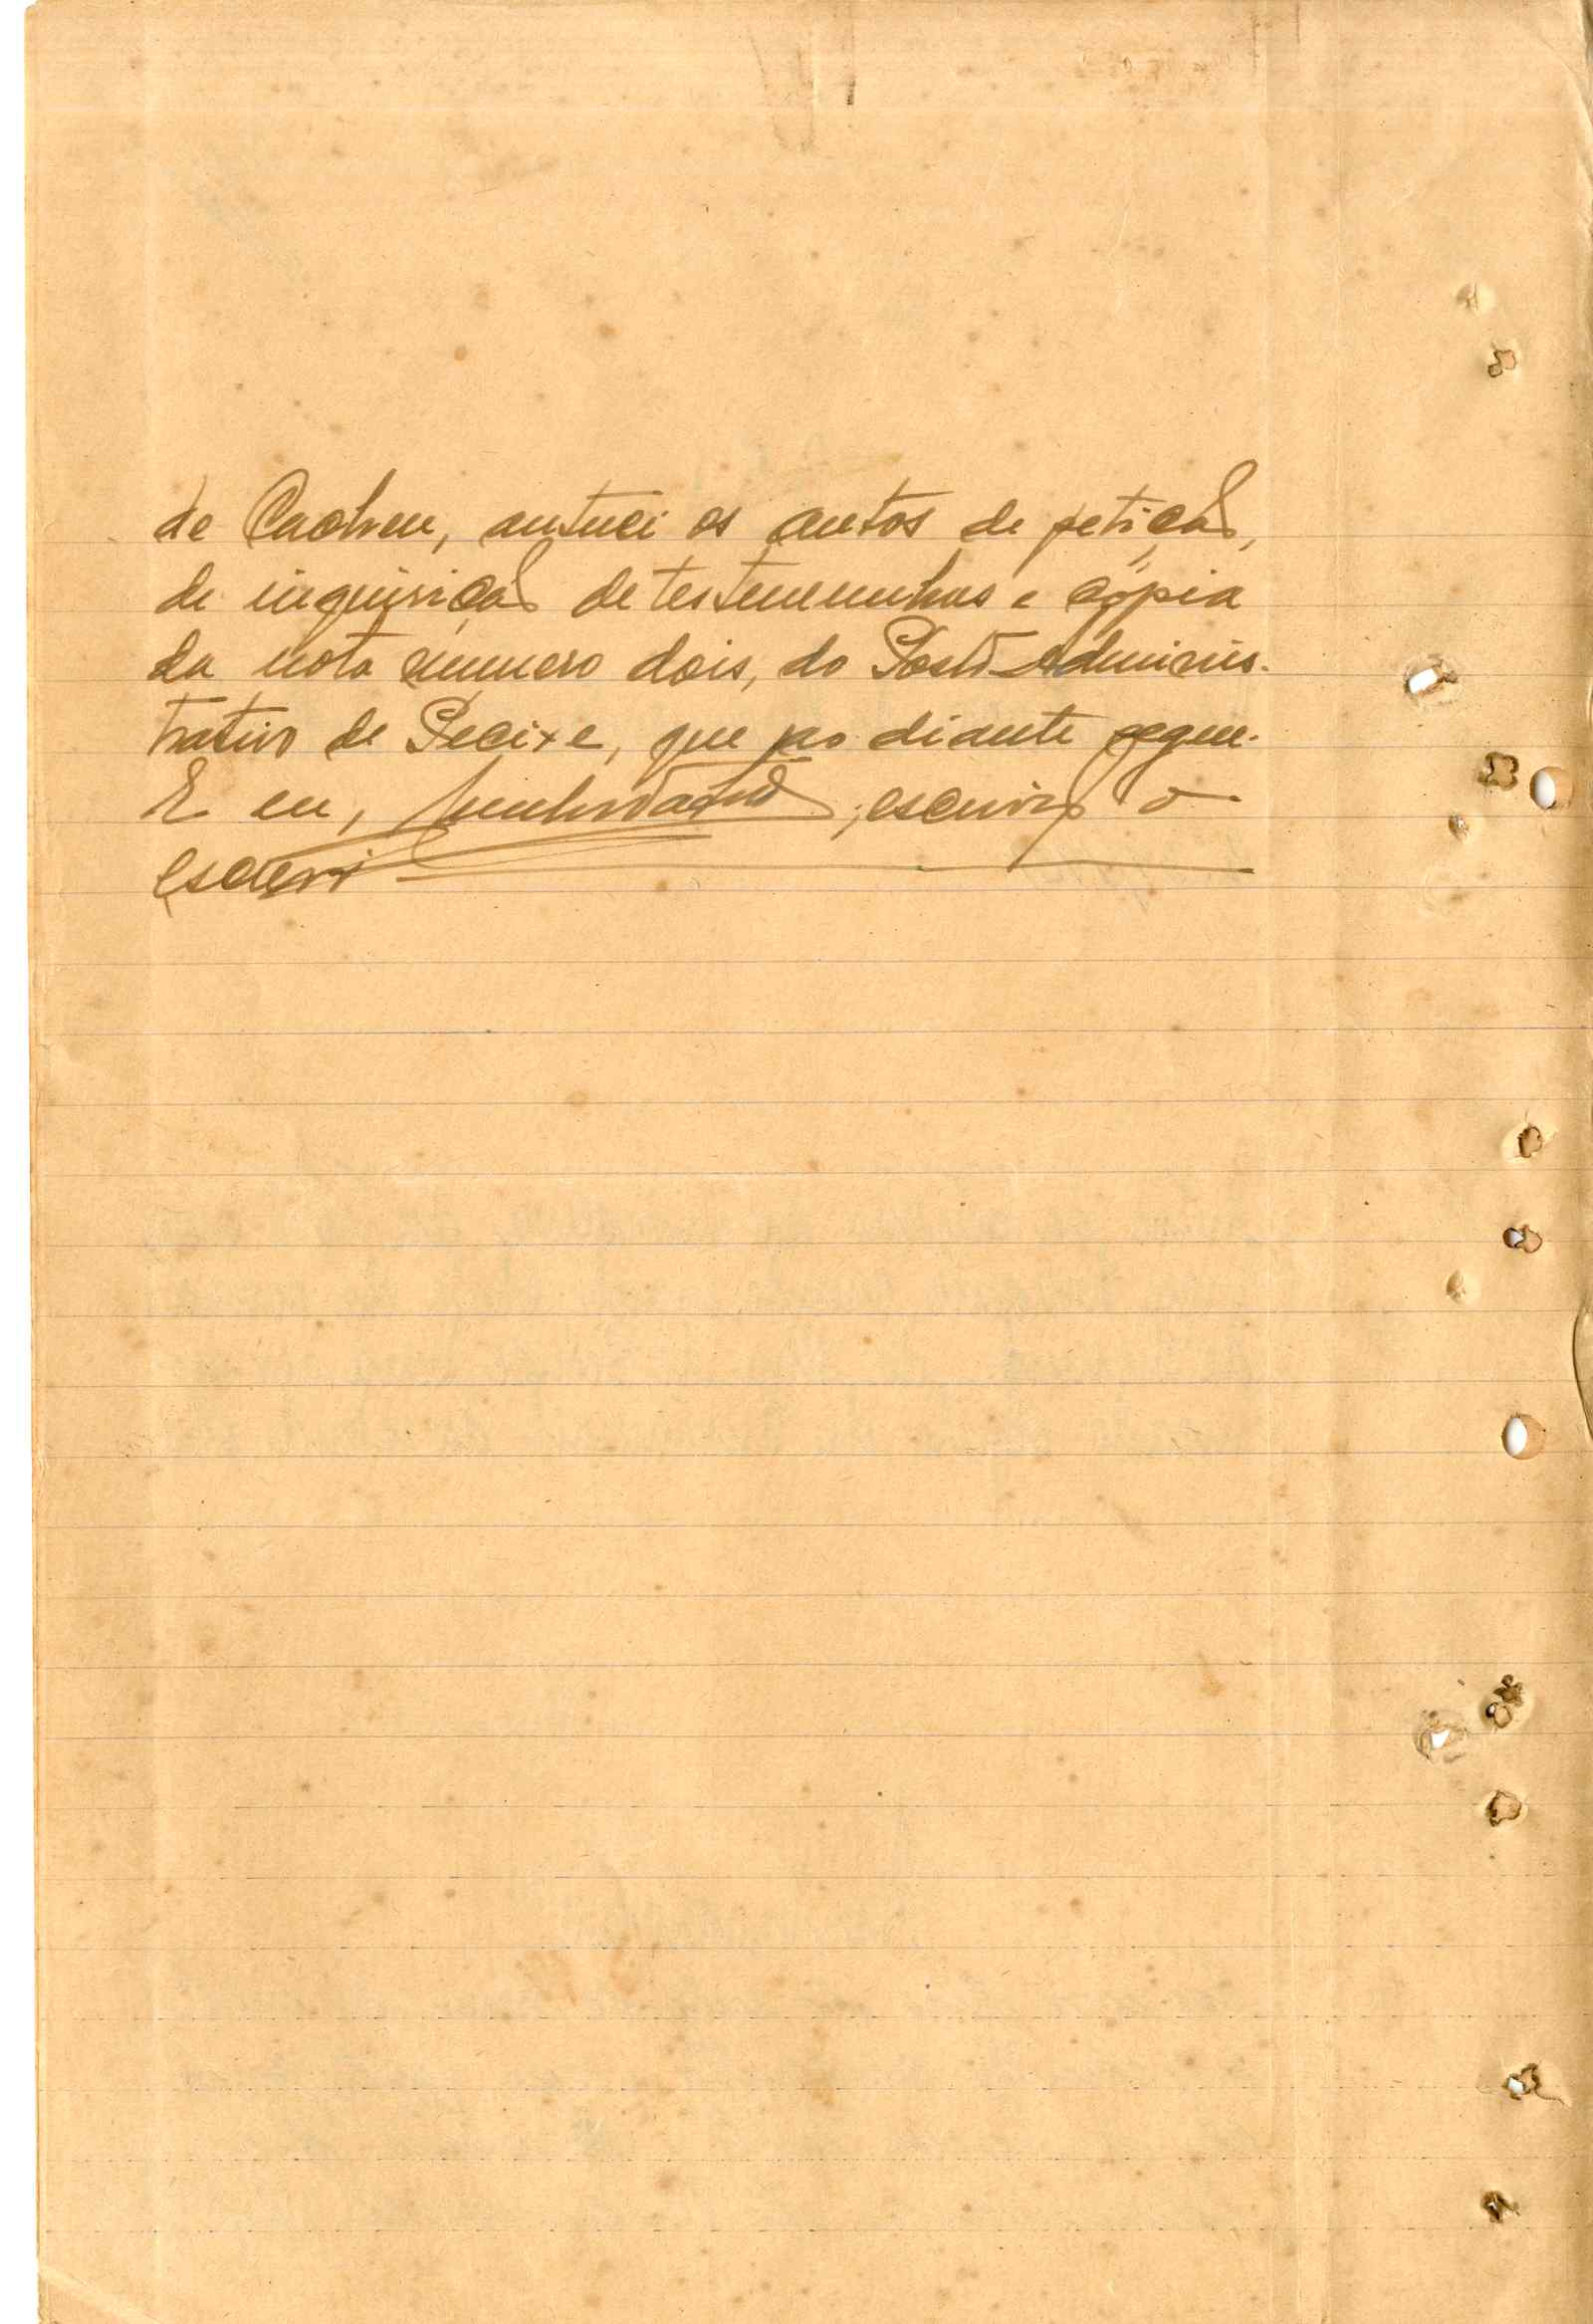 de Cacheu, autuei os autos de petição,
de inquirição de testemunhas e cópia
da nota número dois, do Posto Adminis-
trativo de Pecixe, que por diante segue.
E eu, escrivão o
escrevi